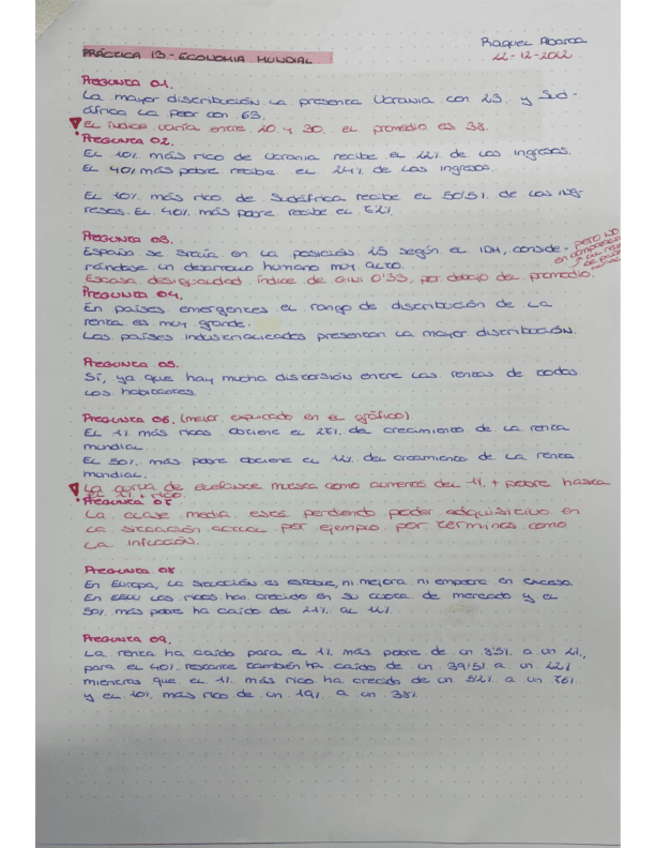 Raquel Abarca
22-12-2022
PRÁCTICA 13 - ECONOMIA MUNDIAL
Pregunta 01.
La mayor distribución la presenta Ucrania con 23. y Sud-
áfrica la peor con 63.
! El índice varía entre 20 y 30. el promedio es 38.
Pregunta 02.
El 10% más rico de Ucrania recibe el 22% de los ingresos.
El 40% más pobre recibe el 24% de los ingresos.
El 10% más rico de Sudáfrica recibe el 50'5% de los ing-
resos. El 40% más pobre recibe el 7'2%.
Pregunta 03.
España se sitúa en la posición 25 según el IDH, conside-
rándose un desarrollo humano muy alto.
pero NO
en comparación
Escasa desigualdad, índice de GINI 0'33, por debajo del promedio.
Pregunta 04.
En países emergentes el rango de distribución de la
renta es muy grande.
Los países industrializados presentan la mayor distribución.
Pregunta 05.
Sí, ya que hay mucha distorsión entre las rentas de todos
los habitantes
Pregunta 06. (mejor explicado en el gráfico)
El 1% más ricos obtiene el 27% del crecimiento de la renta
mundial.
El 50% más pobre obtiene el 12% del crecimiento de la renta
mundial.
! La curva de elefante muestra como aumentó del 1% + pobre hasta
el 1% + rico.
Pregunta 07
La clase media está perdiendo poder adquisitivo en
la situación actual por ejemplo por términos como
la inflación.
Pregunta 08
En Europa, la situación es estable, ni mejora ni empeora en exceso.
En EEUU los ricos han crecido en su cuota de mercado y el
50% más pobre ha caído del 21% al 12%.
Pregunta 09.
La renta ha caído para el 1% más pobre de un 8'5% a un 2%,
para el 40% restante también ha caído de un 39'5% a un 22%
mientras que el 1% más rico ha crecido de un 52% a un 76%
y el 10% más rico de un 19% a un 38%